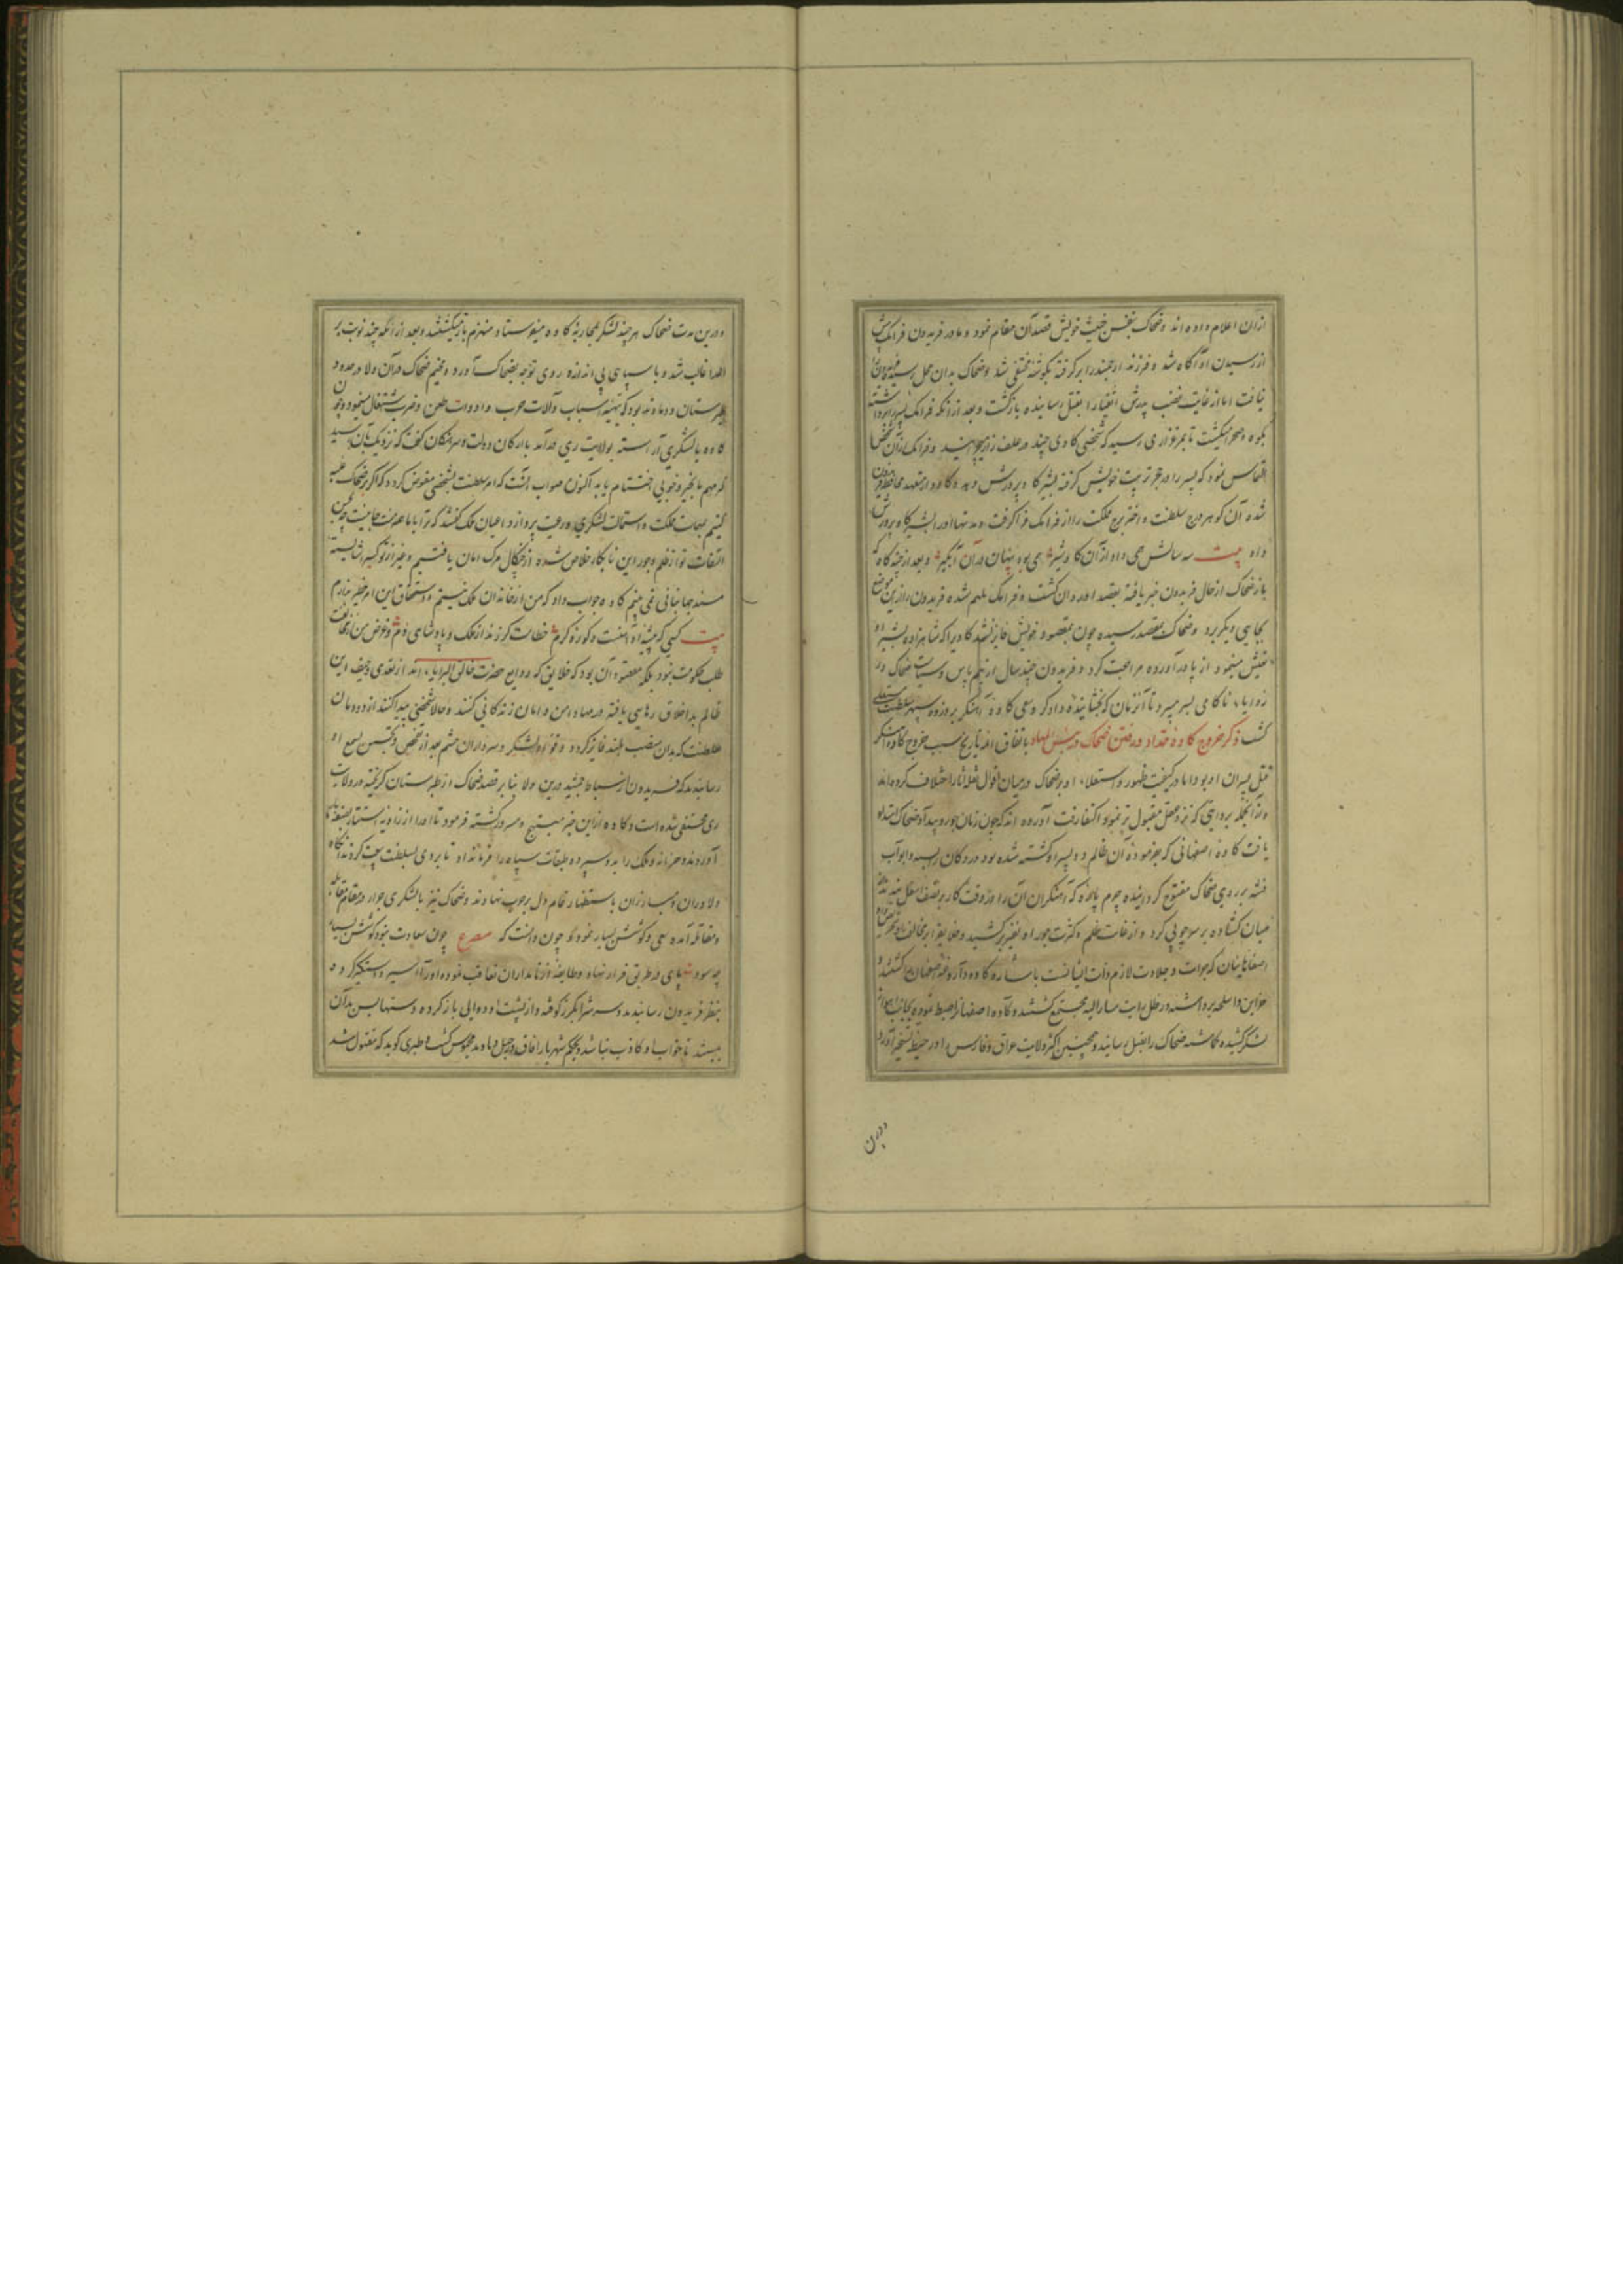 ازان اعلام داده اند و ضحاک بنفس خبیث خویش قصد آن مقام نمود و مادر فریدون فرانک پیش
از رسیدن او آگاه شد و فرزند ارجمند را برگرفته بگوشه مختفی شد و ضحاک بدان محل رسیده فریدون را
نیافت اما از غایت غضب پدرش را بقتل رسانیده بازگشت و بعد از آنکه فرانک پسر را برداشته
بکوه و صحرا میگشت تا بمرغزاری رسید که شخصی گاوی چند در علف زار میچرانید و فرانک ازان شخص
التماس نمود که پسر را در حجر تربیت خویش گرفته بشیر گاو پرورش دهد و گاودار متعهد محافظت فریدون
شده آن گوهر درج سلطنت و اختر برج مملکت را از فرانک فرا گرفت و مدتها او را بشیر گاو پرورش
داد بیت سه سالش همی داد ازان گاو شیر همی بود پنهان دران آبگیر و بعد از چندگاه که
باز ضحاک از حال فریدون خبر یافته بقصد او روان گشت و فرانک ملهم شده فریدون را ازین موضع
بجایی دیگر برد و ضحاک بمقصد رسیده چون بمقصود خویش فایز نشد گاوی را که شاهزاده بشیر او
تعیش مینمود از پا درآورده مراجعت کرد و فریدون چند سال از بیم باس و سیاست ضحاک در
زوایاء ناکامی بسر میبرد تا آنزمان که بخشاینده دادگر و سعی کاوه آهنگر بروز سپهر سلطنت مستعلی
گشت ذکر خروج کاوه حداد و رفتن ضحاک در بئس المهاد باتفاق ائمه تاریخ سبب خروج کاوه آهنگر
قتل پسران او بود اما در کیفیت ظهور و استعلاء او بر ضحاک در میان اقوال نقله آثار اختلاف کرده اند
و از آنجمله بروایتی که نزد عقل مقبول تر نمود اکتفا رفت آورده اند که چون زمان جور و بیداد ضحاک امتداد
یافت کاوه اصفهانی که بفرموده آن ظالم دو پسر او کشته شده بود در دکان رسید و ابواب
فتنه بر روی ضحاک مفتوح گردانیده چرم پاره که آهنگران آن را در وقت کار بر نصف اسفل بندند از
میان گشاده بر سر چوبی کرد و از غایت ظلم و کثرت جور او نفیر برکشید و خلایق را بر مخالفت او تحریص داد
اصفاهانیان که جرات و جلادت لازم ذات ایشانست باشاره کاوه داروغه اصفهان را کشتند و
خزاین و اسلحه برداشته در ظل رایت مشارالیه مجتمع گشتند و کاوه اصفهان را ضبط نموده بجانب اهواز
لشکر کشیده گماشته ضحاک را بقتل رسانید و همچنین اکثر ولایت عراق و فارس را در حیطه تسخیر آورد
و درین
و درین مدت ضحاک هر چند لشکر بمحاربه کاوه میفرستاد منهزم باز میگشتند و بعد از آنکه چند نوبت بر
اعدا غالب شد و با سپاهی بی اندازه روی توجه بضحاک آورد و مخیم ضحاک دران ولا در حدود
طبرستان و دماوند بود که بتهیه اسباب و آلات حرب و ادوات طعن و ضرب اشتغال مینمود و چون
کاوه با لشکری آراسته بولایت ری درآمد با ارکان دولت و سرهنگان گفت که نزدیک بآن رسید
که مهم ما بخیر و خوبی اختتام یابد اکنون صواب آنست که امر سلطنت بشخصی مفوض گردد که اگر بر ضحاک غلبه
کنیم بمهمات مملکت و استمالت لشکری و رعیت پردازد اعیان ملک گفتند که ترا با ما همت چنین
التفات تو از ظلم و جور این نابکار خلاص شده از چنگال مرگ امان یافتیم و غیر از تو کسی را شایسته
مسند جهانبانی نمی بینیم کاوه جواب داد که من از خاندان ملک نیستم و استحقاق این امر خطیر ندارم
بیت کسی که پیشه او آهنست و کوزه گرم خطاست گر زند از ملک و پادشاهی دم و غرض من از مخالفت
طلب حکومت نبود بلکه مقصود آن بود که خلایق که ودایع حضرت خالق البرایا، اند از تعدی و حیف این
ظالم بد اخلاق رهایی یافته در مهاد امن و امان زندگانی کنند و حالا شخصی پیدا کنند از دودمان
سلطنت که بدان منصب بلند فایز گردد و قواد لشکر و سرداران حشم بعد از تفحص و تجسس بسمع او
رسانیدند که فریدون از اسباط جمشید درین ولا بنابر قصد ضحاک از طبرستان گریخته در ولایت
ری مختفی شده است و کاوه ازین خبر مبتهج و مسرور گشته فرمود تا او را از زاویه استتار
آوردند و خزانه و ملک را بدو سپرده طبقات سپاه را فرمان داد تا بر وی بسلطنت بیعت کردند آنگاه
دلاوران و مبارزان باستظهار تمام دل بر حرب نهادند و ضحاک نیز با لشکری جرار در مقام مقابله
و مقاتله آمده سعی و کوشش بسیار نمود و چون دانست که مصرع چون سعادت نبود کوشش بسیار
چه سود پای در طریق فرار نهاد و طایفه از نامداران تعاقب نموده او را اسیر و دستگیر کرده
بنظر فریدون رسانیدند و سرش را بگرز کوفته و از پشت او دوالی باز کرده دستهایش بدان
ببستند تا خواب او کاذب نباشد و بحکم شهریار آفاق در جبل دماوند محبوس گشت و طبری گوید که مقتول شد